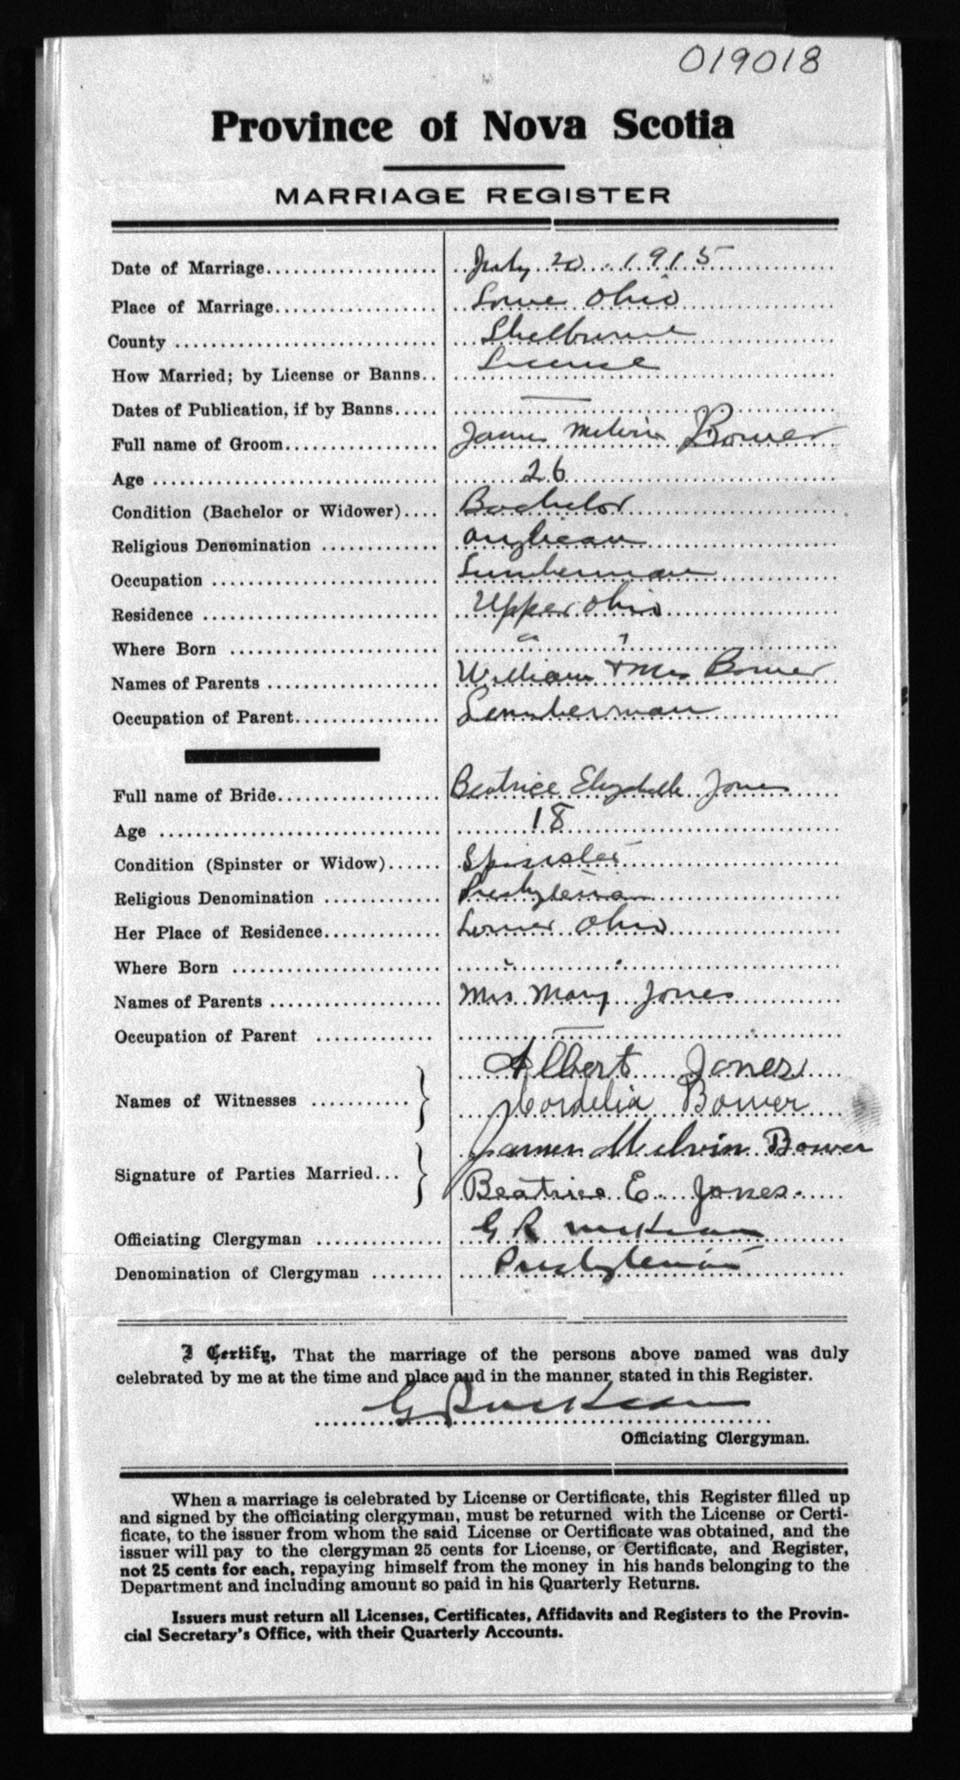 019018
Province of Nova Scotia
MARRIAGE REGISTER
Date of Marriage.................... July 20 1915
Place of Marriage.................... Lowe Ohio
County .................... Shelburne
How Married; by License or Banns.. License
Dates of Publication, if by Banns..... —
Full name of Groom.................... James Melvin Bower
Age .................... 26
Condition (Bachelor or Widower).... Bachelor
Religious Denomination ............. Anglican
Occupation .................... Lumberman
Residence .................... Upper Ohio
Where Born .................... " "
Names of Parents .................... William & Mrs Bower
Occupation of Parent................ Lumberman
Full name of Bride.................. Beatrice Elizabeth Jones
Age .................... 18
Condition (Spinster or Widow)...... Spinster
Religious Denomination ............. Presbyterian
Her Place of Residence............. Lower Ohio
Where Born .................... " "
Names of Parents ................... Mrs Mary Jones
Occupation of Parent ............. —
Albert Jones
Names of Witnesses ...........
Cordelia Bower
James Melvin Bower
Signature of Parties Married...
Beatrice E. Jones.
Officiating Clergyman .............. G R
Denomination of Clergyman ........ Presbyterian
I Certify, That the marriage of the persons above named was duly
celebrated by me at the time and place and in the manner stated in this Register.
G R
Officiating Clergyman.
When a marriage is celebrated by License or Certificate, this Register filled up
and signed by the officiating clergyman, must be returned with the License or Certi-
ficate, to the issuer from whom the said License or Certificate was obtained, and the
issuer will pay to the clergyman 25 cents for License, or Certificate, and Register,
not 25 cents for each, repaying himself from the money in his hands belonging to the
Department and including amount so paid in his Quarterly Returns.
Issuers must return all Licenses, Certificates, Affidavits and Registers to the Provin-
cial Secretary's Office, with their Quarterly Accounts.